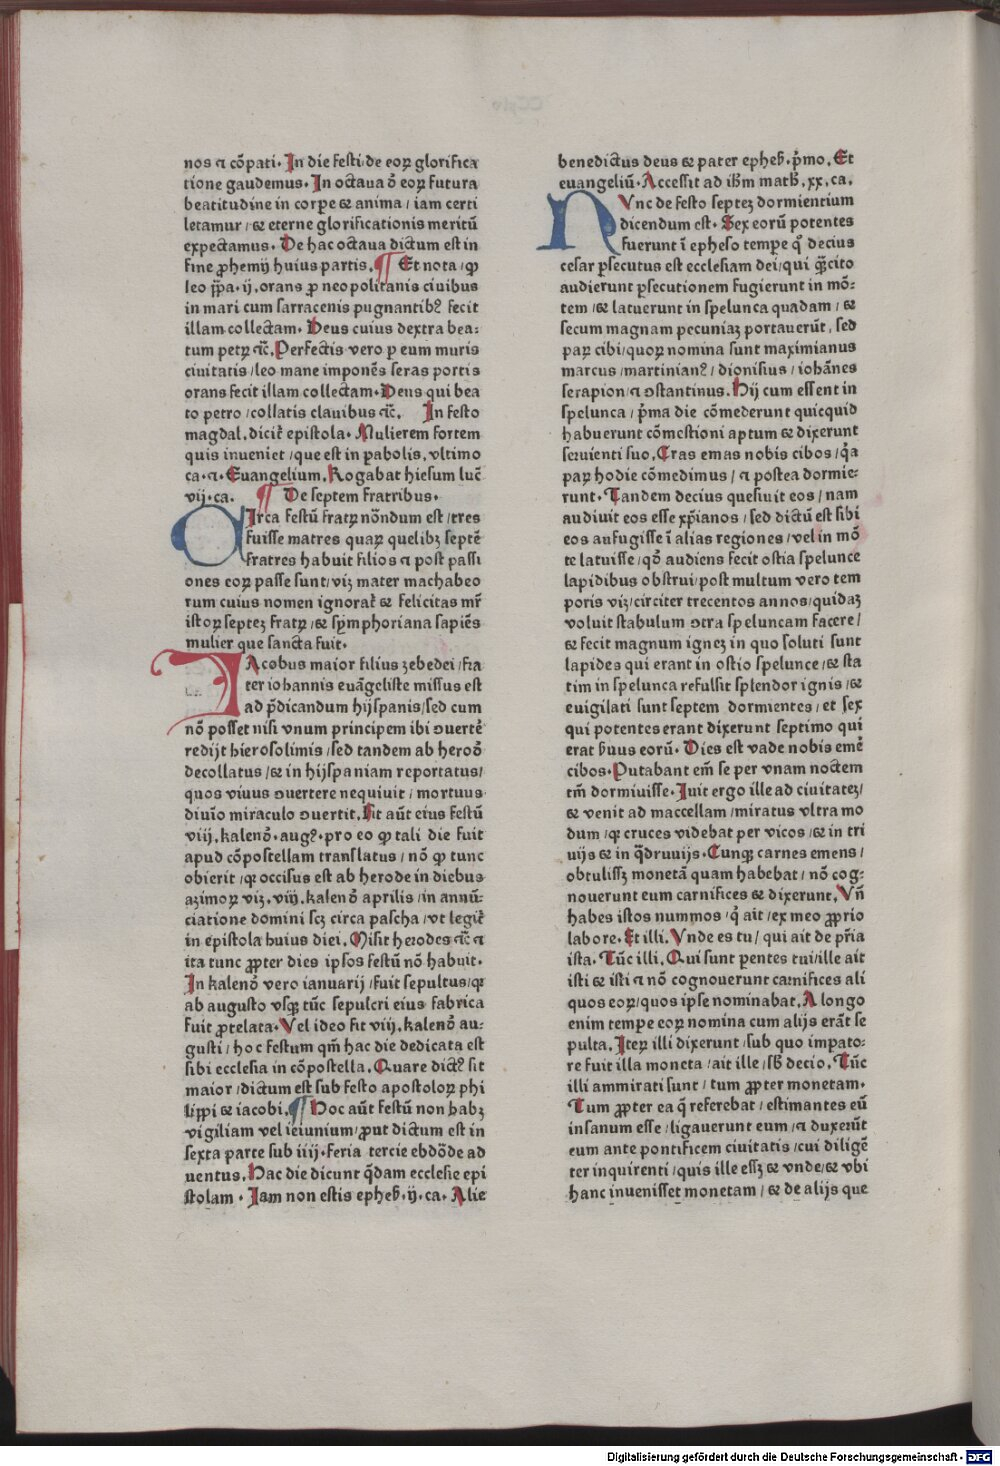 nos ⁊ cōpati. In die festi de eoꝝ glorifica
tione gaudemus. In octaua ō eoꝝ futura
beatitudine in corpe & anima / iam certi
letamur / & eterne glorificationis meritū
expectamus. De hac octaua dictum est in
fine ꝓhemij huius partis. ¶ Et nota / ꝙ
leo pp̄a. ij, orans ꝓ neopolitanis ciuibus
in mari cum sarracenis pugnantibꝰ fecit
illam collectam. Deus cuius dextra bea⸗
tum petrꝝ ⁊c̄. Perfectis vero ꝑ eum muris
ciuitatis / leo mane imponēs seras portis
orans fecit illam collectam. Deus qui bea
to petro / collatis clauibus ⁊c̄. In festo
magdal. dicit᷑ epistola. Mulierem fortem
quis inueniet / que est in ꝑabolis, vltimo
ca. ⁊. Euangelium. Rogabat hiesum luc̄
vij. ca. ¶ De septem fratribus.
CIrca festū fratꝝ nōndum est / tres
fuisse matres quaꝝ quelibꝫ septē
fratres habuit filios ⁊ post passi
ones eoꝝ passe sunt / viꝫ mater machabeo
rum cuius nomen ignorat᷑ & felicitas mr̄
istoꝝ septeꝫ fratꝝ / & symphoriana sapiēs
mulier que sancta fuit.
IAcobus maior filius ꝫebedei / fra
ter iohannis euāgeliste missus est
ad p̄dicandum hijspanis / sed cum
nō posset nisi vnum principem ibi ↄuertē
redijt hierosolimis / sed tandem ab heroō
decollatus / & in hijspaniam reportatus /
quos viuus ↄuertere nequiuit / mortuus
diuīo miraculo ↄuertit. Fit aūt eius festū
viij. kalenō. augꝰ. pro eo ꝙ tali die fuit
apud cōpostellam translatus / nō ꝙ tunc
obierit / qꝛ occisus est ab herode in diebus
aꝫimoꝝ viꝫ. viij. kalenō aprilis / in annū⸗
ciatione domini scꝫ circa pascha / vt legit᷑
in epistola huius diei. Misit herodes ⁊c̄ ⁊
ita tunc ꝓpter dies ipsos festū nō habuit.
In kalenō vero ianuarij / fuit sepultus / qꝛ
ab augusto vsqꝫ tūc sepulcri eius fabrica
fuit ꝓtelata. Vel ideo fit viij. kalenō au⸗
gusti / hoc festum qm̄ hac die dedicata est
sibi ecclesia in cōpostella. Quare dictꝰ sit
maior / dictum est sub festo apostoloꝝ phi
lippi & iacobi. ¶ Hoc aūt festū non habꝫ
vigiliam vel ieiunium / ꝓut dictum est in
sexta parte sub iiij. feria tercie ebdōde ad
uentus. Hac die dicunt q̄dam ecclesie epi
stolam. Iam non estis ephes̄. ij. ca. Alie
benedictus deus & pater ephes̄. p̄mo. Et
euangeliū. Accessit ad ih̄m math̄. xx. ca.
NVnc de festo septeꝫ dormientium
dicendum est. Sex eorū potentes
fuerunt ī epheso tempe q̊ decius
cesar ꝑsecutus est ecclesiam dei / qui q̄cito
audierunt ꝑsecutionem fugierunt in mō⸗
tem / & latuerunt in spelunca quadam / &
secum magnam pecuniaꝫ portauerūt, sed
paꝝ cibi / quoꝝ nomina sunt maximianus
marcus / martinianꝰ / dionisius / iohānes
serapion / ⁊ ↄstantinus. Hij cum essent in
spelunca / p̄ma die cōmederunt quicquid
habuerunt cōmestioni aptum & dixerunt
seruienti suo. Cras emas nobis cibos / q̇a
paꝝ hodie cōmedimus / ⁊ postea dormie⸗
runt. Tandem decius quesiuit eos / nam
audiuit eos esse xp̄ianos / sed dictū est sibi
eos aufugisse ī alias regiones / vel in mō
te latuisse / qō audiens fecit ostia spelunce
lapidibus obstrui / post multum vero tem
poris viꝫ / circiter trecentos annos / quidaꝫ
voluit stabulum ↄtra speluncam facere /
& fecit magnum igneꝫ in quo soluti sunt
lapides qui erant in ostio spelunce / & sta
tim in spelunca refulsit splendor ignis / &
euigilati sunt septem dormientes / et sex
qui potentes erant dixerunt septimo qui
erat s̄uus eorū. Dies est vade nobis emē
cibos. Putabant em̄ se per vnam noctem
tm̄ dormiuisse. Iuit ergo ille ad ciuitateꝫ /
& venit ad maccellam / miratus vltra mo
dum / qꝛ cruces videbat per vicos / & in tri
uijs & in q̄druuijs. Cunqꝫ carnes emens /
obtulissꝫ monetā quam habebat / nō cog⸗
nouerunt eum carnifices & dixerunt. Vn̄
habes istos nummos / q̇ ait / ex meo ꝓprio
labore. Et illi. Vnde es tu / qui ait de pr̄ia
ista. Tūc illi. Qui sunt ꝑentes tui / ille ait
isti & isti ⁊ nō cognouerunt carnifices ali
quos eoꝝ / quos ipse nominabat. A longo
enim tempe eoꝝ nomina cum alijs erāt se
pulta. Iteꝝ illi dixerunt / sub quo impato⸗
re fuit illa moneta / ait ille / sb̄ decio. Tūc
illi ammirati sunt / tum ꝓpter monetam.
Tum ꝓpter ea q̄ referebat / estimantes eū
insanum esse / ligauerunt eum / ⁊ duxerūt
eum ante pontificem ciuitatis / cui diligē
ter inquirenti / quis ille essꝫ & vnde / & vbi
hanc inuenisset monetam / & de alijs que
Digitalisierung gefördert durch die Deutsche Forschungsgemeinschaft - DFG